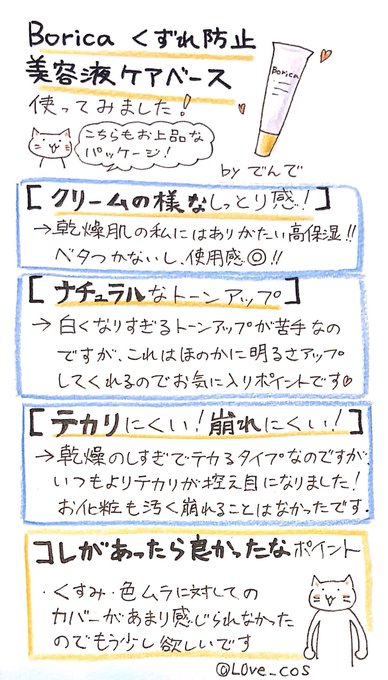 Borica くずれ防止
美容液ケアベース
使ってみました!
Borica
こちらもお上品な
パッケージ!
by でんで
[クリームの様なしっとり感!]
→乾燥肌の私にはありがたい高保湿!!
ベタつかないし、使用感◎!!
[ナチュラルなトーンアップ]
→白くなりすぎるトーンアップが苦手なの
ですが、これはほのかに明るさアップ
してくれるのでお気に入りポイントです♡
[テカリにくい!崩れにくい!]
→乾燥のしすぎでテカるタイプなのですが、
いつもよりテカリが控え目になりました!
お化粧も汚く崩れることはなかったです.
コレがあったら良かったなポイント
・くすみ・色ムラに対しての
カバーがあまり感じられなかった
のでもう少し欲しいです
@LOve_cos